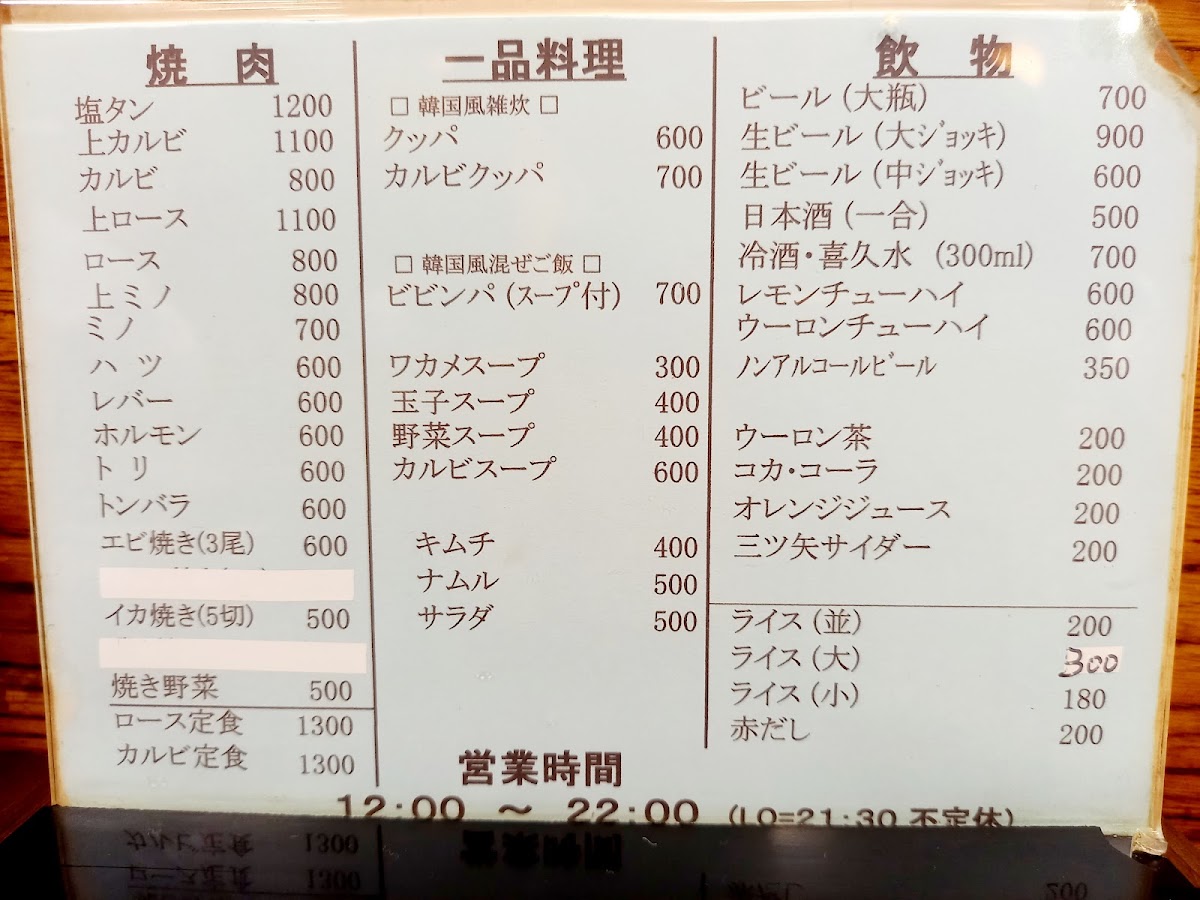 焼 肉
塩タン 1200
上カルビ 1100
カルビ 800
上ロース 1100
ロース 800
上ミノ 800
ミノ 700
ハ ツ 600
レバー 600
ホルモン 600
ト リ 600
トンバラ 600
エビ焼き(3尾) 600
イカ焼き(5切) 500
焼き野菜 500
ロース定食 1300
カルビ定食 1300
一品料理
□ 韓国風雑炊 □
クッパ 600
カルビクッパ 700
□ 韓国風混ぜご飯 □
ビビンパ (スープ付) 700
ワカメスープ 300
玉子スープ 400
野菜スープ 400
カルビスープ 600
キムチ 400
ナムル 500
サラダ 500
飲 物
ビール (大瓶) 700
生ビール (大ジョッキ) 900
生ビール (中ジョッキ) 600
日本酒 (一合) 500
冷酒・喜久水 (300ml) 700
レモンチューハイ 600
ウーロンチューハイ 600
ノンアルコールビール 350
ウーロン茶 200
コカ・コーラ 200
オレンジジュース 200
三ツ矢サイダー 200
ライス (並) 200
ライス (大) 300
ライス (小) 180
赤だし 200
営業時間
12:00 ～ 22:00 (LO=21:30 不定休)